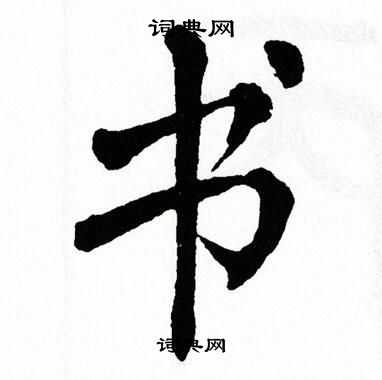 词典网
书
词典网